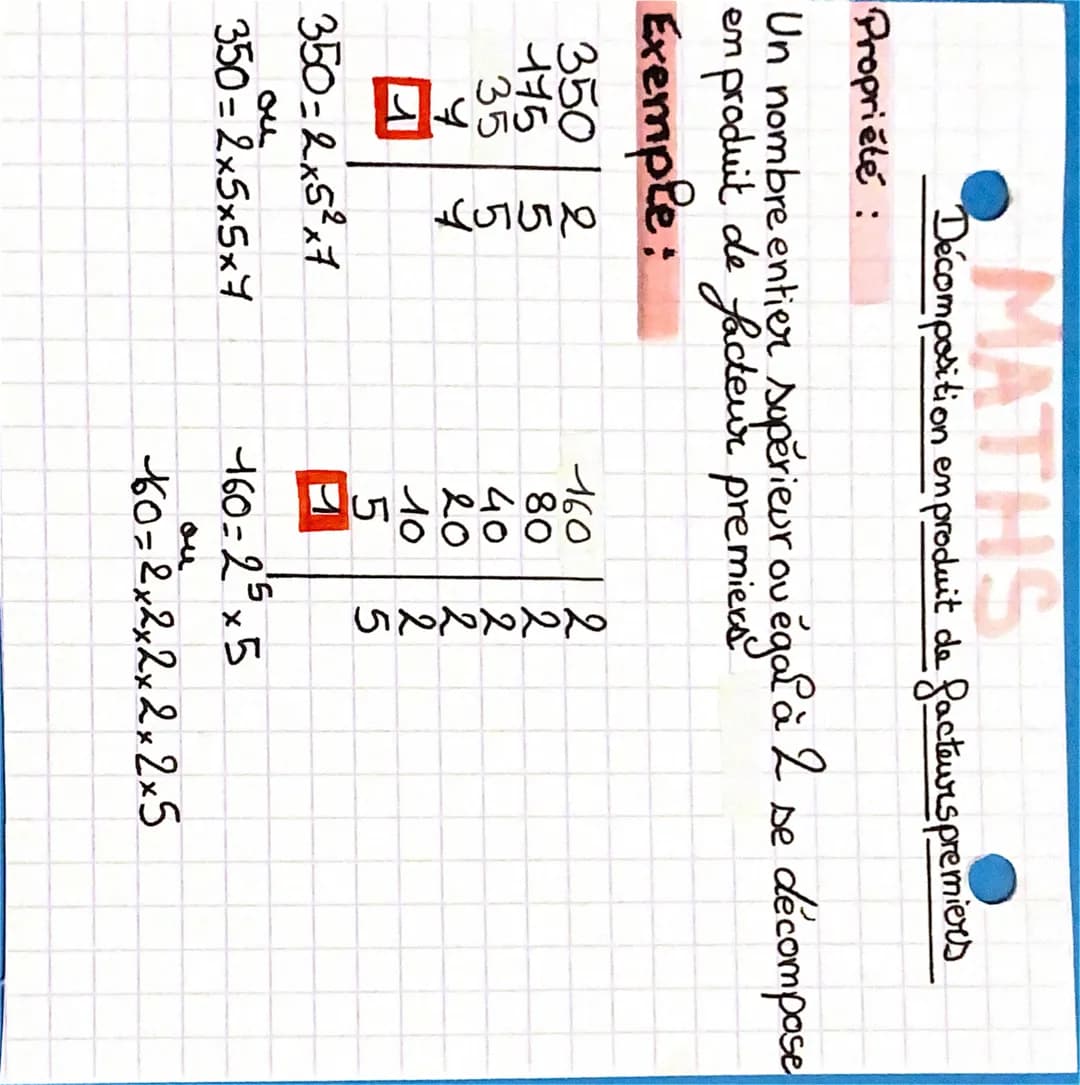 MATHS
Décomposition en produit de facteurs premiers
Propriété :
Un nombre entier supérieur ou égal à 2 se décompose
en produit de facteur premiers
Exemple :
350 2
175 5
35 5
7 7
1
350 = 2 x 5² x 7
ou
350 = 2 x 5 x 5 x 7
160 2
80 2
40 2
20 2
10 2
5 5
1
160 = 2⁵ x 5
ou
160 = 2 x 2 x 2 x 2 x 2 x 5